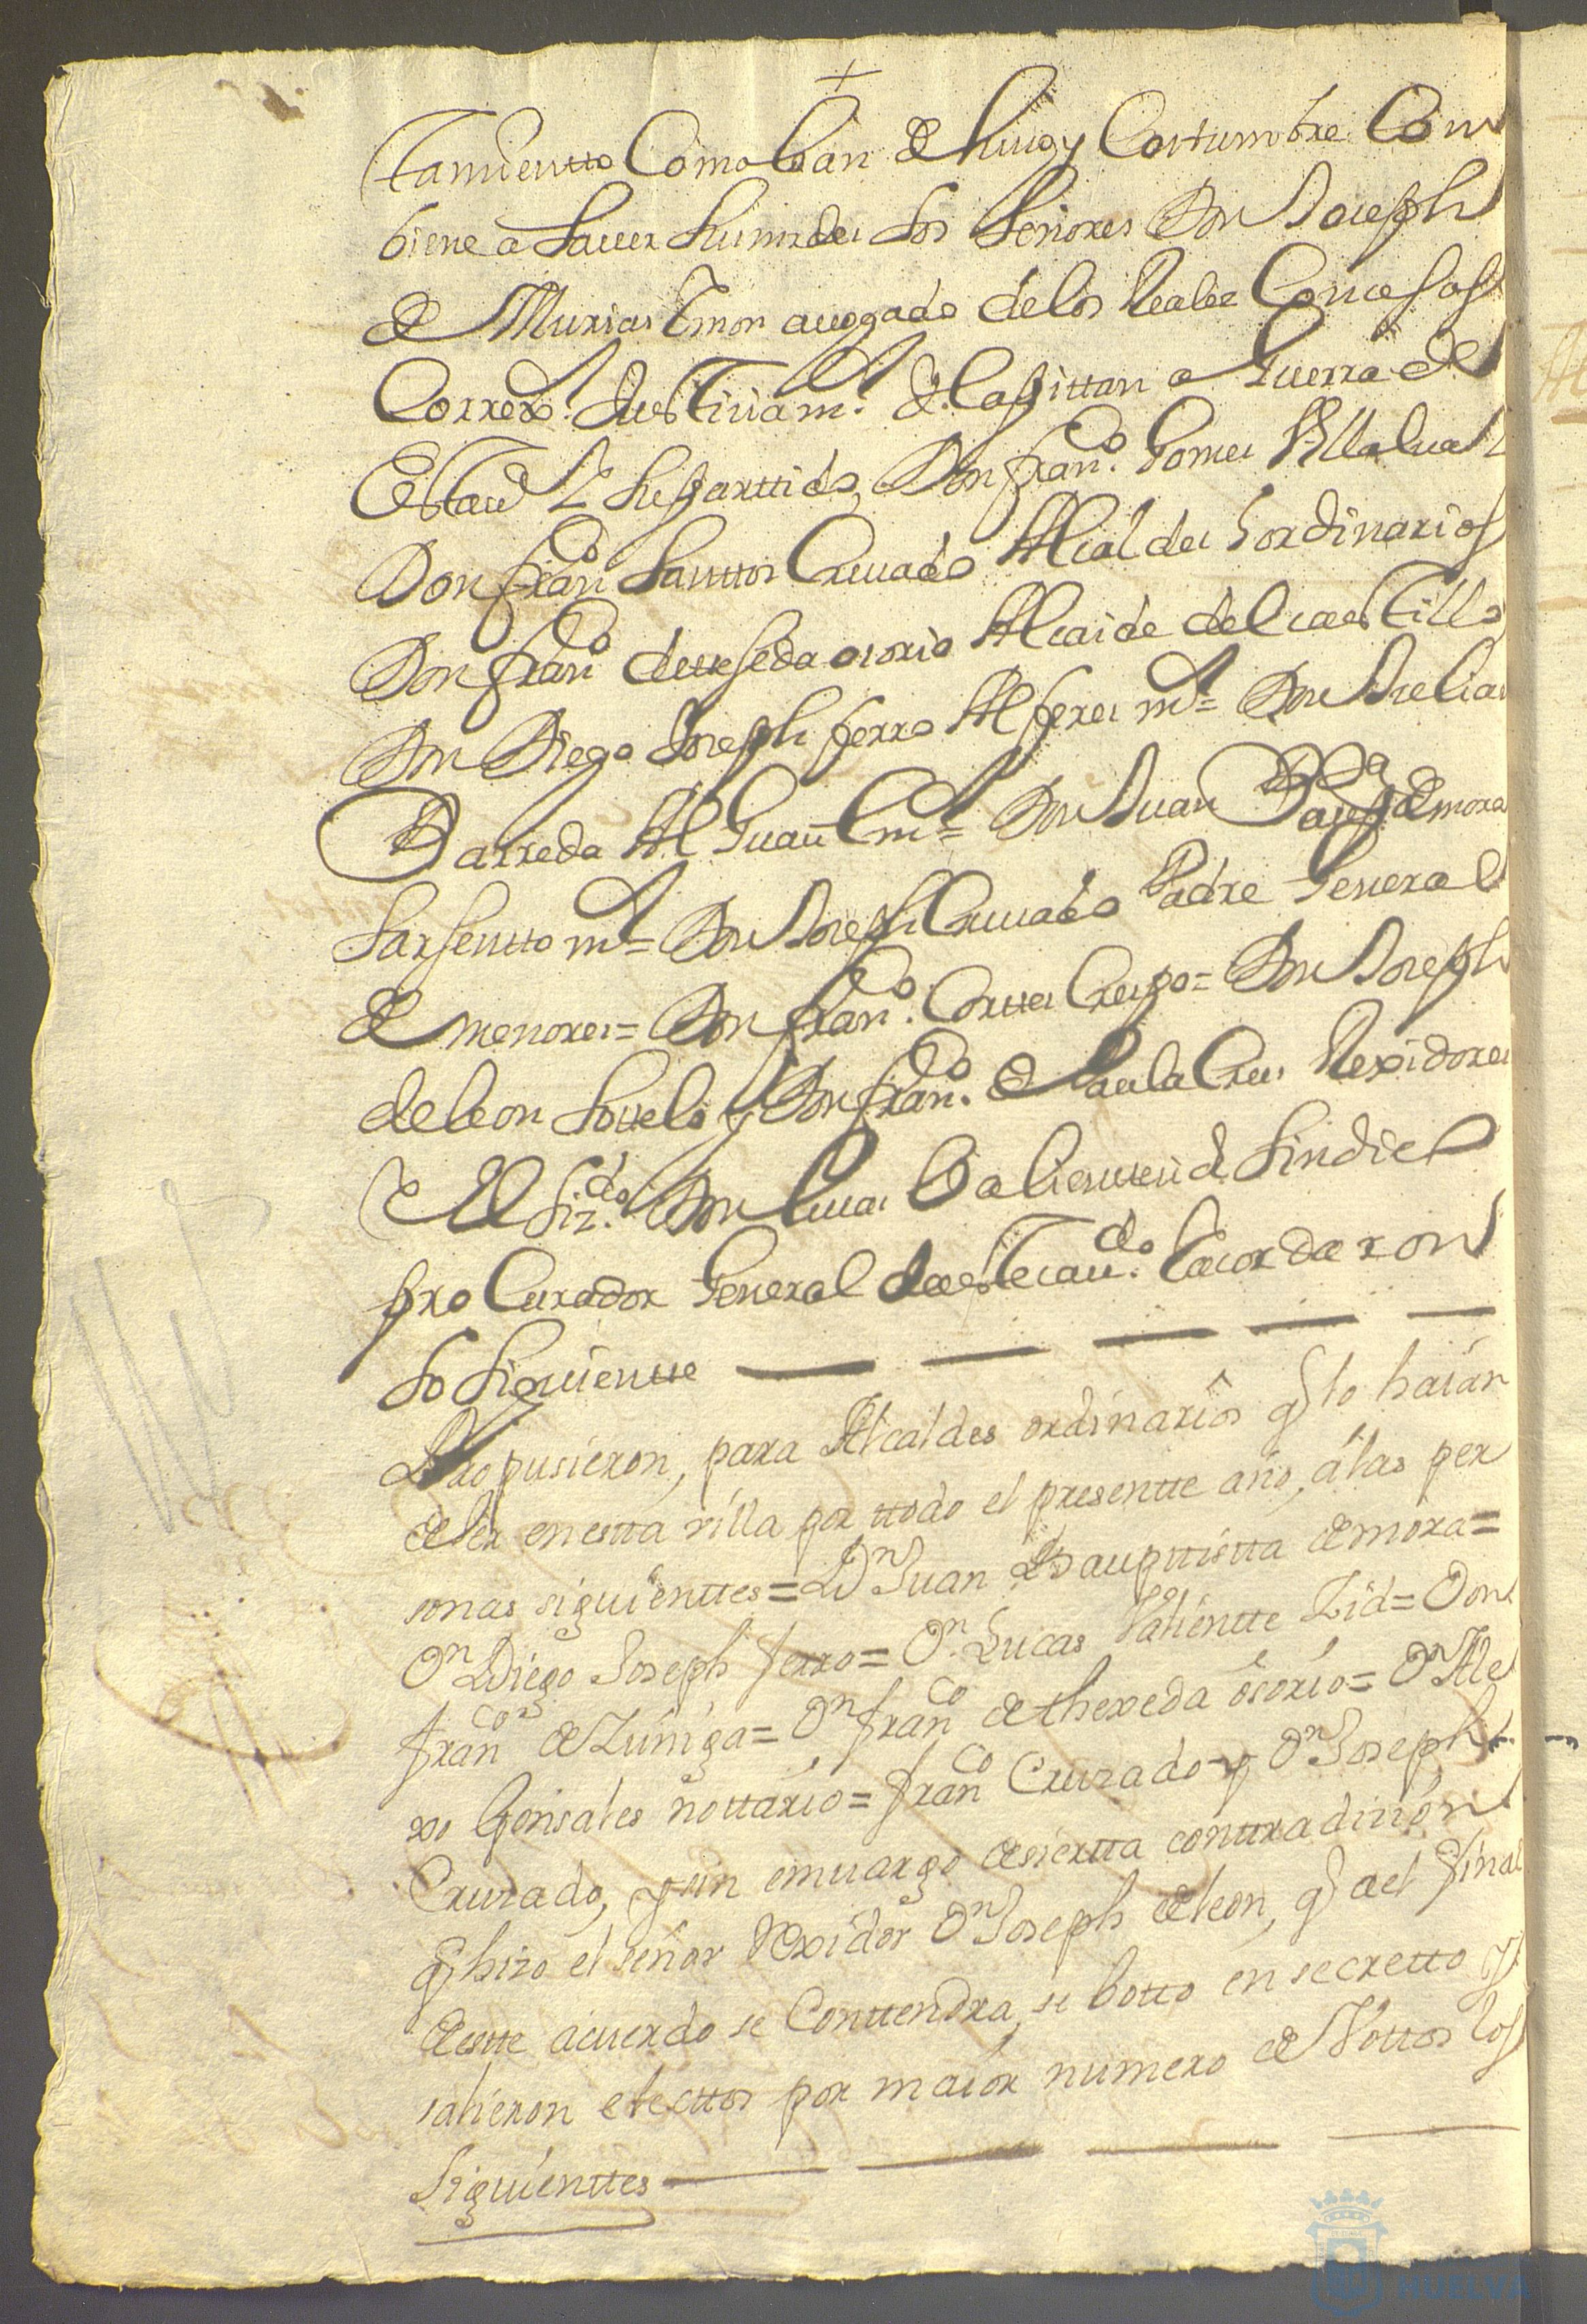 +
tamientto Como lo an de huso y Costumbre Con
biene a Sauer Sus mrdes los Señores Don Joseph
de Murias Tmon auogado de los Reales Consejos
Correxr. Justicia mr. Cappittan a Guerra de
Esta vª y su parttido, Don franco. Gomez Villalua
Don franco Santtos Cruzado Alcaldes hordinarios
Don franco de ttexeda osorio Alcaide del castillo
Don Diego Joseph ferro Alferez mr = Don Julian
Barreda Alguacil mr = Don Juan Bauptta de mora
Sarjentto mr = Don Joseph Cruzado Padre General
de menores = Don franco. Corttes Crespo = Don Joseph
de leon Sottelo y Don franco. de Paula Cruz Rexidores
y El Lizdo. Don Lucas Balientte zid Sindico
procurador General de este cauдo. acordaron
lo Siguientte
Propusieron, para Alcaldes ordinarios q lo haian
de ser en estta villa por ttodo el presentte año, â las per
sonas siguienttes = Dn Juan Bauptistta de mora =
Dn Diego Joseph ferro = Dn. Lucas Valientte Zid = Don
franco de Zuniga = Dn franco de thexeda osorio = Dn Ale
xo Gonsales nottario = franco Cruzado y Dn Joseph
Cruzado, y sin emuargo de siertta conttradizion
q hizo el señor Rexidor Dn Joseph de leon, q a el final
de estte acuerdo se Conttendra, se botto en secretto y
salieron electtos por maior numero de Vottos los
Siguienttes
HUELVA